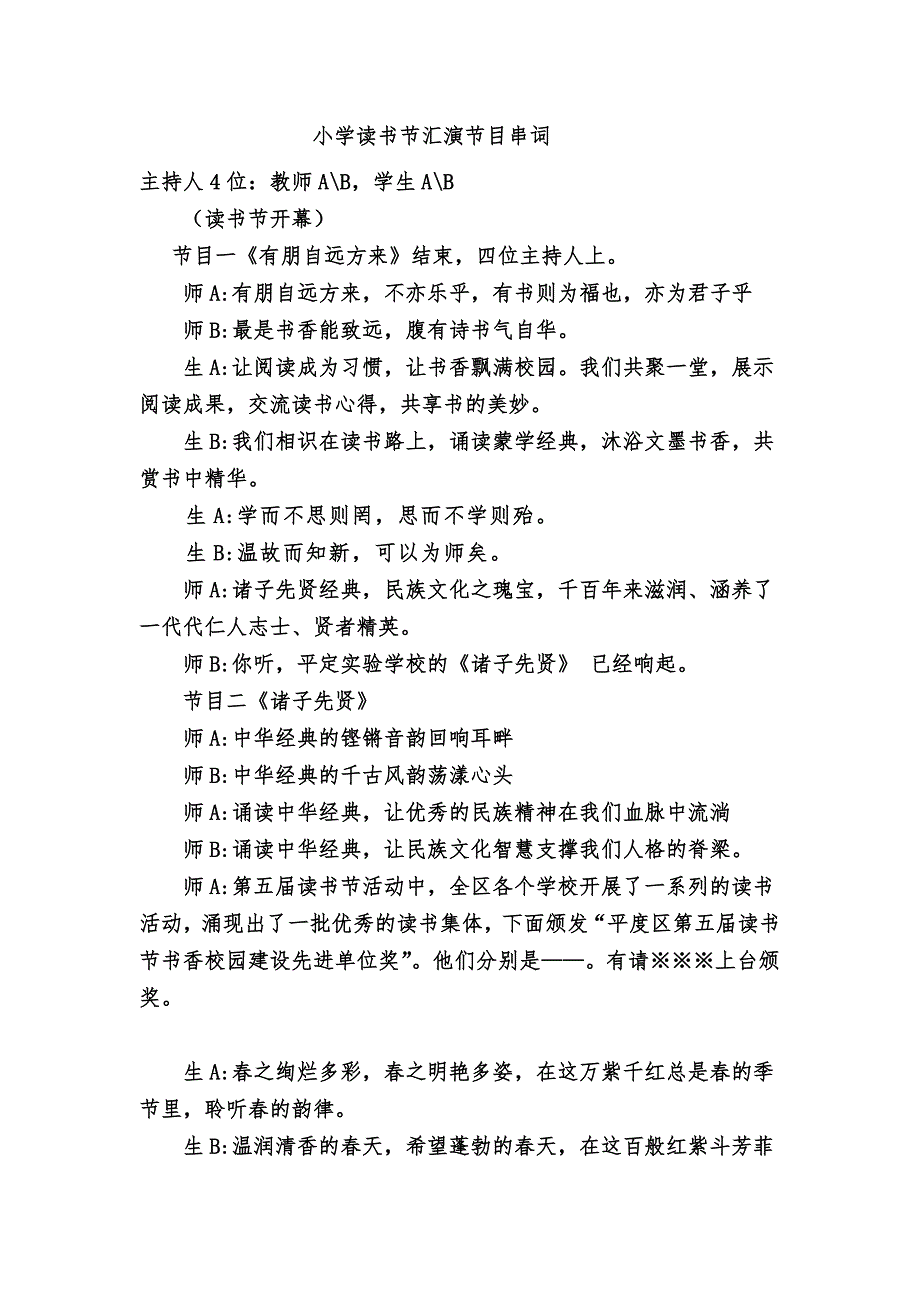 小学读书节汇演节目串词
主持人4位：教师A\B，学生A\B
（读书节开幕）
节目一《有朋自远方来》结束，四位主持人上。
师A:有朋自远方来，不亦乐乎，有书则为福也，亦为君子乎
师B:最是书香能致远，腹有诗书气自华。
生A:让阅读成为习惯，让书香飘满校园。我们共聚一堂，展示
阅读成果，交流读书心得，共享书的美妙。
生B:我们相识在读书路上，诵读蒙学经典，沐浴文墨书香，共
赏书中精华。
生A:学而不思则罔，思而不学则殆。
生B:温故而知新，可以为师矣。
师A:诸子先贤经典，民族文化之瑰宝，千百年来滋润、涵养了
一代代仁人志士、贤者精英。
师B:你听，平定实验学校的《诸子先贤》 已经响起。
节目二《诸子先贤》
师A:中华经典的铿锵音韵回响耳畔
师B:中华经典的千古风韵荡漾心头
师A:诵读中华经典，让优秀的民族精神在我们血脉中流淌
师B:诵读中华经典，让民族文化智慧支撑我们人格的脊梁。
师A:第五届读书节活动中，全区各个学校开展了一系列的读书
活动，涌现出了一批优秀的读书集体，下面颁发“平度区第五届读书
节书香校园建设先进单位奖”。他们分别是——。有请※※※上台颁
奖。
生A:春之绚烂多彩，春之明艳多姿，在这万紫千红总是春的季
节里，聆听春的韵律。
生B:温润清香的春天，希望蓬勃的春天，在这百般红紫斗芳菲